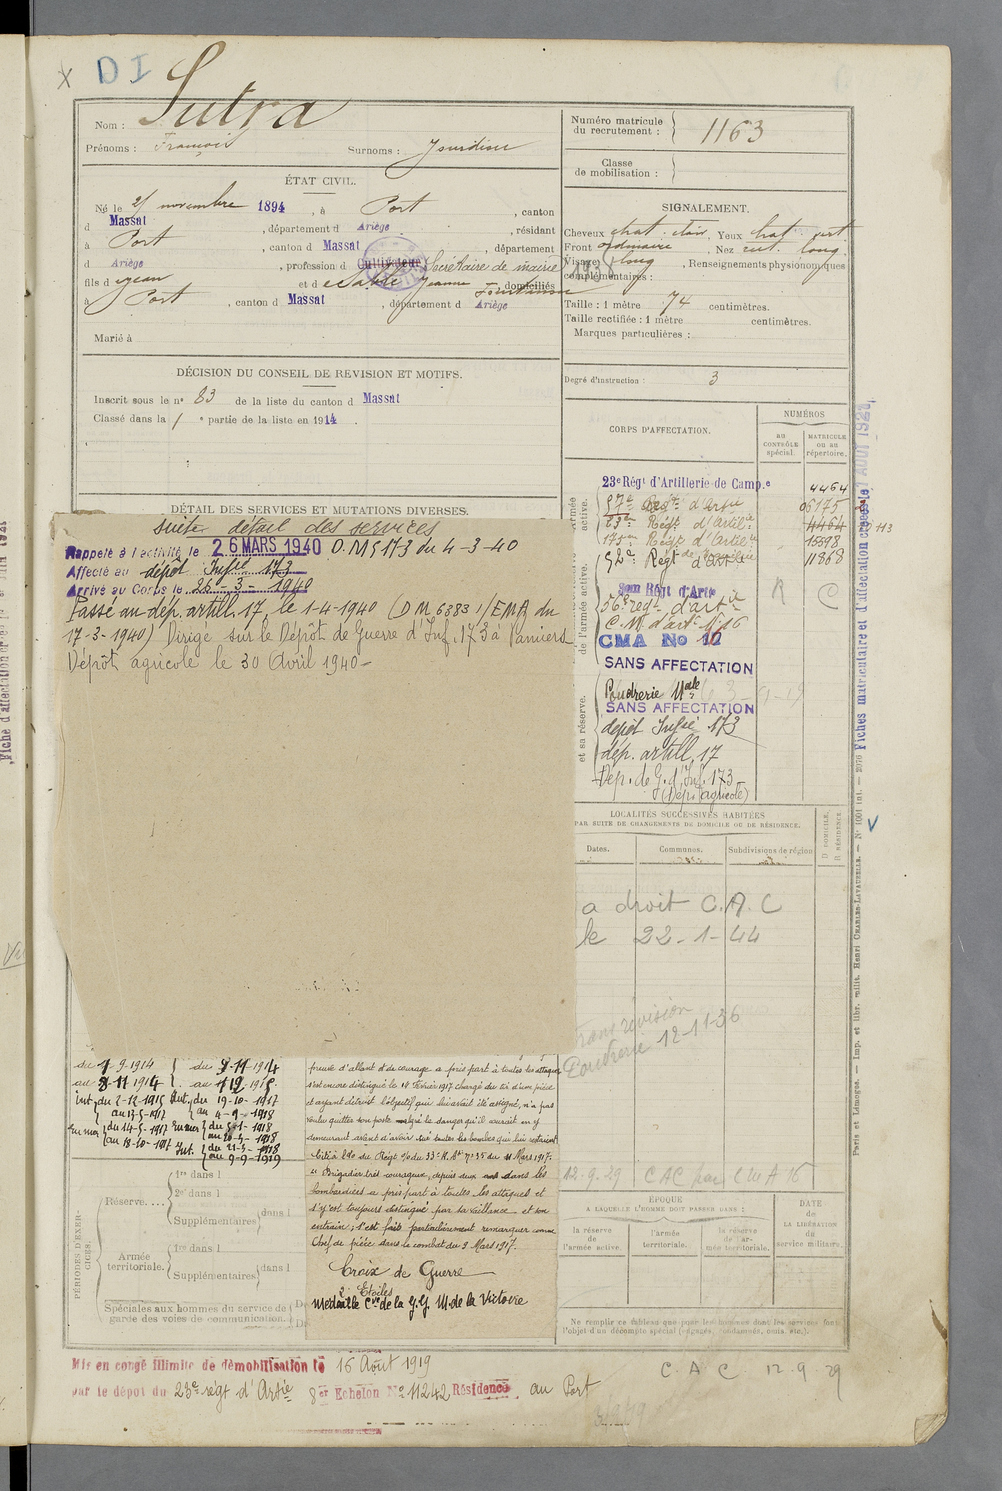 X DI
Sutra
Nom :
Prénoms : François Surnoms : Jourdine
ÉTAT CIVIL.
Né le 2/ novembre 1894, à Port, canton
d Massat, département d Ariège, résidant
à Port, canton d Massat, département
d Ariège, profession d Cultivateur Secrétaire de mairie
fils d Jean et d Jeanne, domiciliés
à Port, canton d Massat, département d Ariège
Marié à
DÉCISION DU CONSEIL DE REVISION ET MOTIFS.
Inscrit sous le n° 83 de la liste du canton d Massat
Classé dans la 1 e partie de la liste en 1914.
DÉTAIL DES SERVICES ET MUTATIONS DIVERSES.
suite détail des services
Rappelé à l'activité le 26 MARS 1940 D.M 5173 du 4-3-40
Affecté au dépôt Infrie 173
Arrivé au Corps le 26-3-1940
Passé au dép. artill. 17, le 1-4-1940 (DM 6383 1/EMA du
17-3-1940) Dirigé sur le Dépôt de Guerre d'Inf. 173 à Pamiers
Dépôt agricole le 30 Avril 1940-
du 1-9-1914
au 8-11 1914
Int. du 2-12-1915
au 17-5-1917
En mer du 14-5-1917
au 18-10-1917
du 9-11-1914
au 1-12-1915
Int. du 19-10-1917
au 4-9-1918
En mer du 5-1-1918
au 20-5-1918
Int. du 21-5-1918
au 9-9-1919
preuve d'allant et de courage a pris part à toutes les attaques
s'est encore distingué le 14 Février 1917 chargé du tir d'une pièce
et ayant détruit l'objectif qui lui avait été assigné, n'a pas
voulu quitter son poste malgré le danger qu'il courait en y
demeurant avant d'avoir tiré toutes les bombes qui lui restaient
Cité à l'do du Régt % du 33e R. At n° 35 du 11 Mars 1917:
" Brigadier très courageux, depuis deux ans dans les
bombardiers a pris part à toutes les attaques et
s'y est toujours distingué par sa vaillance et son
entrain; s'est fait particulièrement remarquer comme
Chef de pièce dans le combat du 9 Mars 1917.
Croix de Guerre
2 Etoiles
Médaille Cve de la G.G. M. de la Victoire
PÉRIODES D'EXERCICES.
Réserve....
1re dans l
2e dans l
Supplémentaires dans l
Armée territoriale.
1re dans l
Supplémentaires dans l
Spéciales aux hommes du service de
garde des voies de communication.
Mis en congé illimité de démobilisation le 16 Août 1919
par le dépôt du 23e régt d'Artie 8er Echelon N° 11242 Résidence au Port
Numéro matricule
du recrutement : 1163
Classe
de mobilisation :
SIGNALEMENT.
Cheveux chat. clair, Yeux chat. vert
Front ordinaire, Nez rect. long.
Visage long, Renseignements physionomiques
complémentaires :
Taille : 1 mètre 74 centimètres.
Taille rectifiée : 1 mètre centimètres.
Marques particulières :
Degré d'instruction : 3
CORPS D'AFFECTATION.
NUMÉROS
AU CONTRÔLE spécial.
MATRICULE ou au répertoire.
23e Régt d'Artillerie de Camp.e 4464
57e Régt d'Artie 06175
23e Régt d'Artil.ie 4464
175e Régt d'Artil.ie 15598
52e Régt d'Artillerie 11868
56e regt d'artie
C.M d'art. N°16
CMA No 12
SANS AFFECTATION
Poudrerie Nale
SANS AFFECTATION
dépôt Infrie 173
dép. artill. 17
Dép. de G. d'Inf. 173
(Dépt agricole)
R C
113
armée active.
de l'armée active.
et sa réserve.
LOCALITÉS SUCCESSIVES HABITÉES
PAR SUITE DE CHANGEMENTS DE DOMICILE OU DE RÉSIDENCE.
Dates. Communes. Subdivisions de région
D DOMICILE. R RÉSIDENCE
a droit C.A.C
le 22-1-44
Trans révision
Poudrerie 12-11-36
12.9.29 CAC par CMA 16
ÉPOQUE
A LAQUELLE L'HOMME DOIT PASSER DANS :
la réserve
de
l'armée active.
l'armée
territoriale.
la réserve
de l'armée territoriale.
DATE
de
LA LIBÉRATION
du
service militaire.
Ne remplir ce tableau que pour les hommes dont les services font
l'objet d'un décompte spécial (engagés, condamnés, omis, etc.).
C A C 12.9.29
Fiches matriculaire et d'affectation créées le 7 AOUT 1928
Paris et Limoges. — Imp. et libr. milit. Henri CHARLES-LAVAUZELLE. — N° 1001 int. — 2076